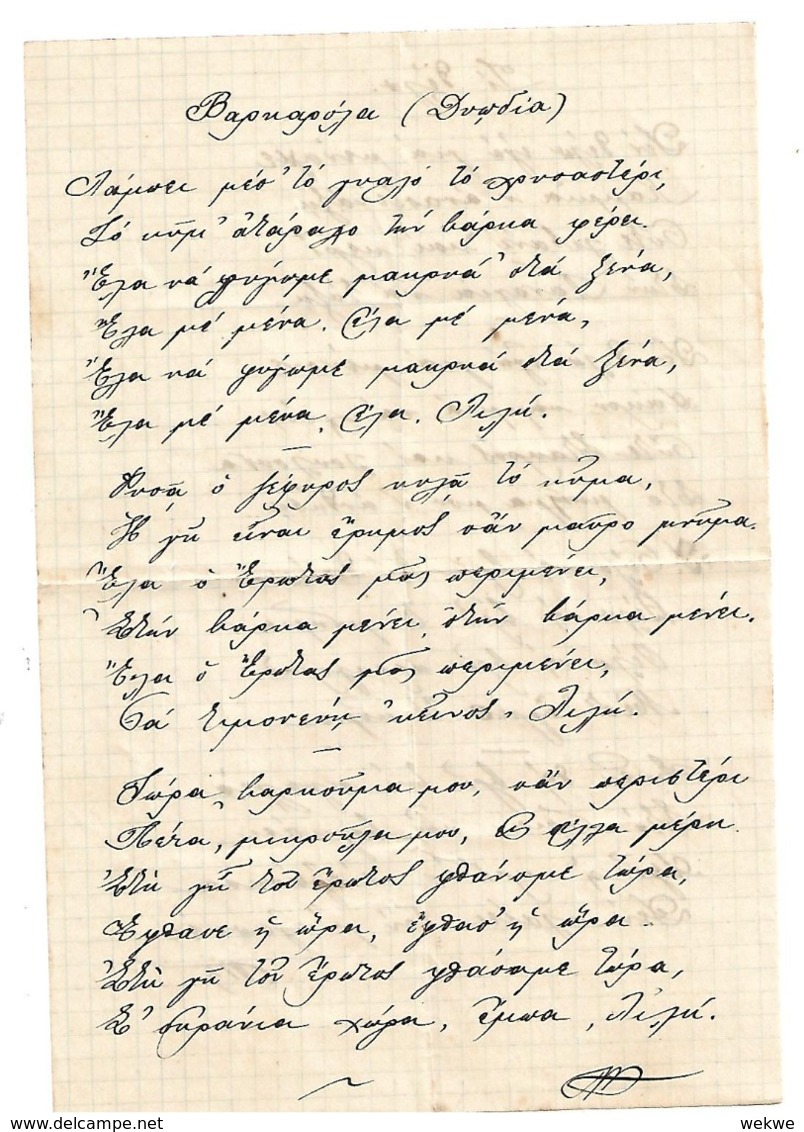 Βαρκαρόλα (Δυῳδία)
Λάμπει μέσ' τό γυαλό τό χρυσαστέρι,
Τό κῦμ' ἀτάραχο τήν βάρκα φέρει.
Ἔλα νά φύγωμε μακρυά στά ξένα,
Ἔλα μέ μένα. Ἔλα μέ μένα,
Ἔλα νά φύγωμε μακρυά στά ξένα,
Ἔλα μέ μένα, ἔλα. Λιλή.
Φυσᾷ ὁ ζέφυρος κυλᾷ τό κῦμα,
Ἡ γῆ εἶναι ἔρημος σἄν μαῦρο μνῆμα.
Ἔλα ὁ Ἔρωτας μᾶς περιμένει,
Στήν βάρκα μένει, στήν βάρκα μένει.
Ἔλα ὁ Ἔρωτας μᾶς περιμένει,
Θά τιμονεύῃ 'κεῖνος, Λιλή.
Τώρα, βαρκοῦλα μου, σἄν περιστέρι
Πέτα, μικροῦλα μου, σ' ἄλλα μέρη.
Στή γῆ τοῦ ἔρωτος φθάνομε τώρα,
Ἔφθασε ἡ ὥρα, ἔφθασ' ἡ ὥρα.
Στή γῆ τοῦ ἔρωτος φθάσαμε τώρα,
Σ' οὐράνια χώρα, ἔμπα, Λιλή.
wekwe